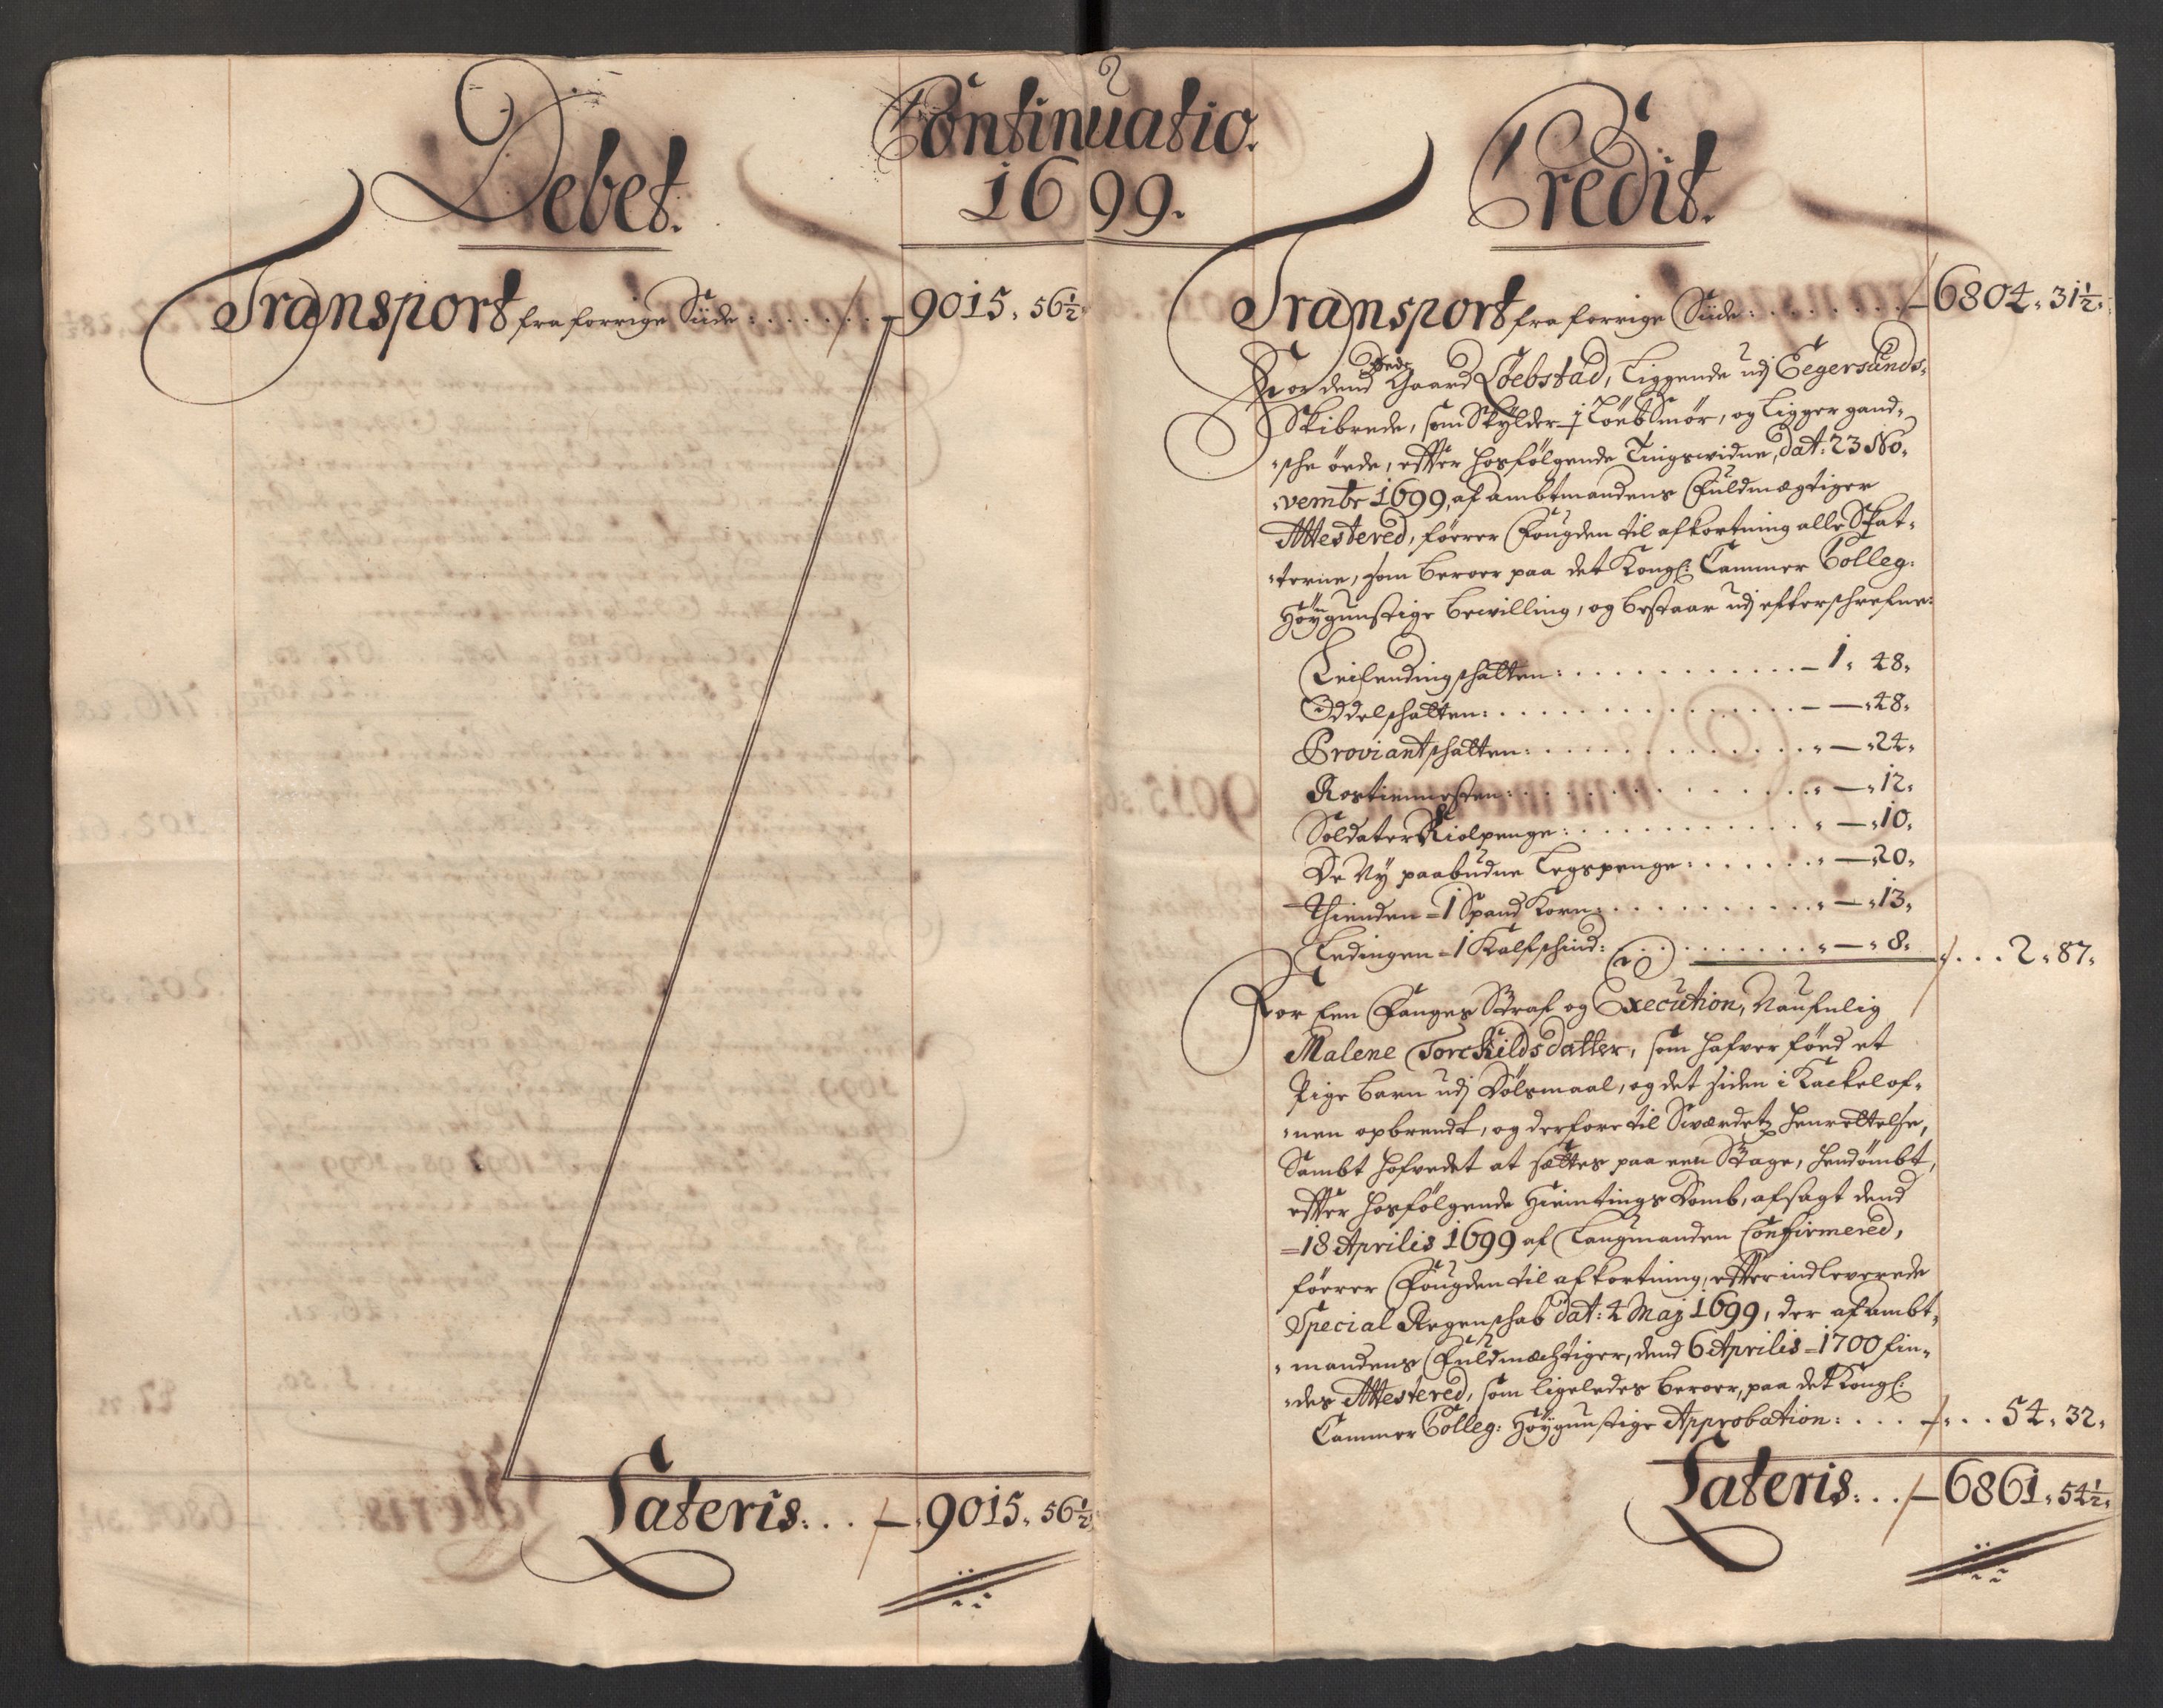 Continuatio.
1699.
Debet.
Transport fra forrige Siide: . . . . . . . – 9015. 56½
Lateris. . . – 9015. 56½
Credit.
Transport fra forrige Siide: . . . . . . . – 6804. 31½.
For dend Gaard Löebstad, liggende udj Eegersunds-
Skibrede, som Skylder – 1 Löeb Smör, og ligger gand-
-sche öede, effter hosfölgende Tingswidne, dat: 23 No-
-vembr 1699, af ambtmandens Fuldmægtiger
Attestered, förer Fougden til afkortning alle Skat-
-terne, som beroer paa det Kongl: Cammer Colleg:
Höygunstige bewilling, og bestaar udj efterschrefne:
Leilendingschatten: . . . . . . – 1. 48.
Oddelschatten: . . . . . . – — 48.
Proviantschatten: . . . . . . — 24.
Rostiennesten: . . . . . . — 12.
Soldater Kiolpenge: . . . . . . — 10.
De Ny paabudne Legspenge: . . . . . . — 20.
Thienden = 1 Spand Korn: . . . . . . — 13.
Ledingen = 1 Kalfschind: . . . . . . — 8. . . . 2. 87.
For een Fanges Straf og Execution, Naufnlig
Malene Torckildsdatter, som hafver föed et
Pige barn udj Dölsmaal, og det siden i Kackelof-
-nen opbrendt, og derfore til Swærdetz henrettelse,
Sambt hofvedet at sættes paa een Stage, hendömbt,
effter hosfölgende Hiemtings Domb, afsagt dend
=18 Aprilis 1699 af Laugmanden Confirmered,
förer Fougden til afkortning, effter indleverede
Special Regenschab dat: 4 Maj 1699, der af ambt-
-mandens Fuldmæchtiger, dend 6 Aprilis = 1700 fin-
-des Attestered, som ligeledes beroer, paa det Kongl:
Cammer Colleg: Höygunstige Approbation: . . . . . . 54. 32.
Lateris: . . – 6861. 54½.